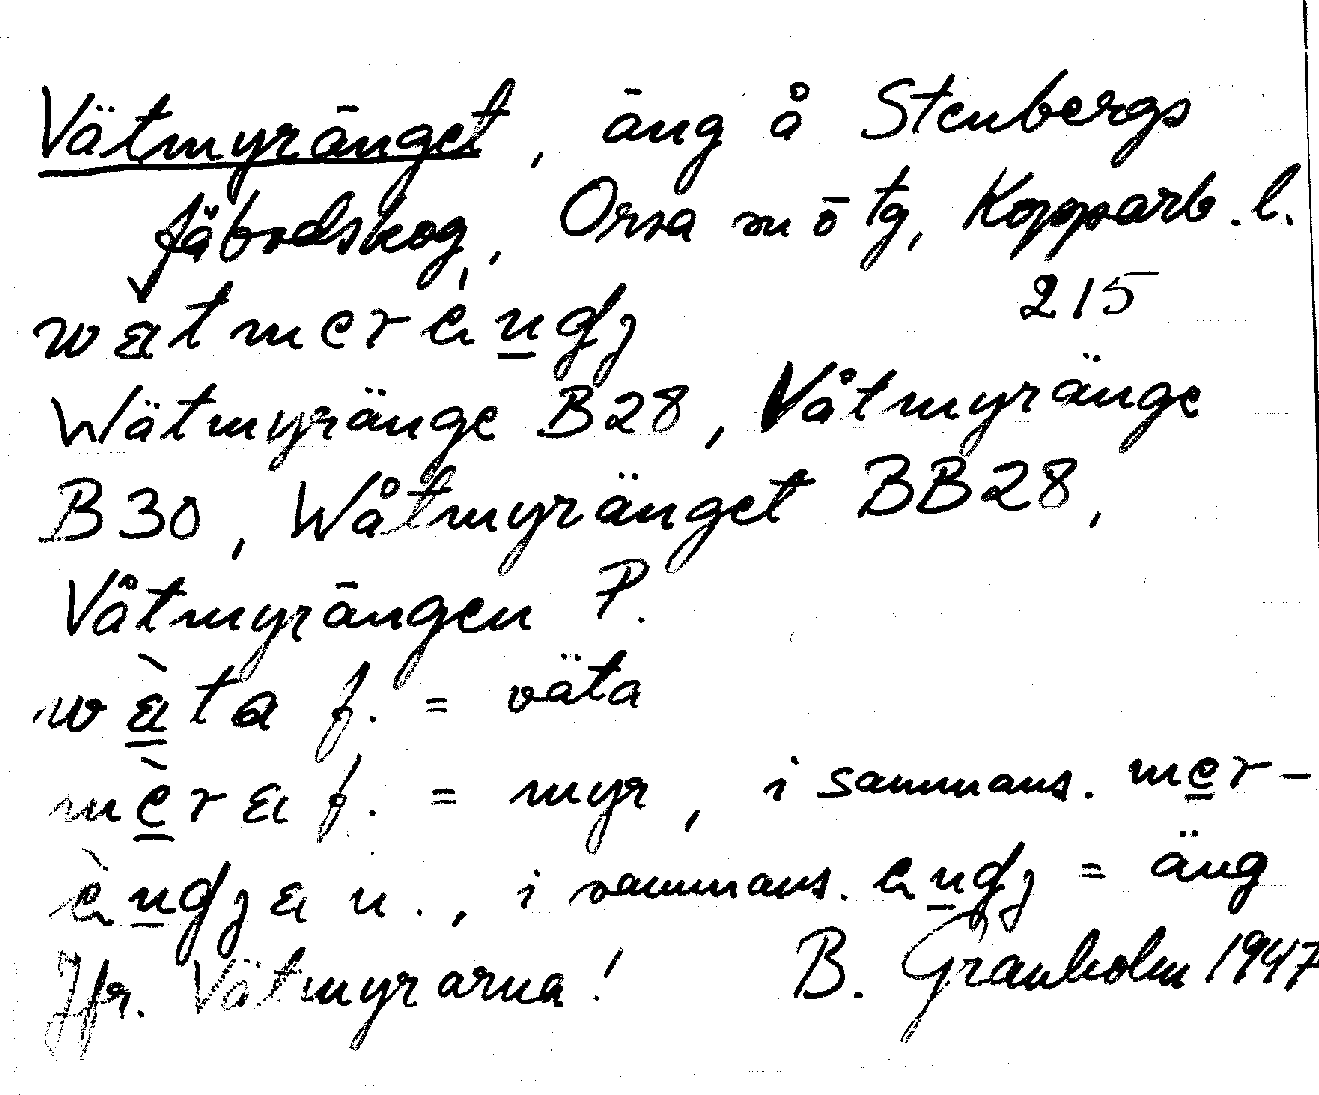 Vätmyränget, äng å Stenbergs
fäbodskog, Orsa m ö tg, Kopparb. l.
215
Wätmyränge B28, Våtmyränge
B30, Wåtmyränget BB28,
Våtmyrängen P.
f. = väta
f. = myr, i sammans. mer-
n., i sammans. = äng
Jfr. Vätmyrarna! B. Granholm 1947